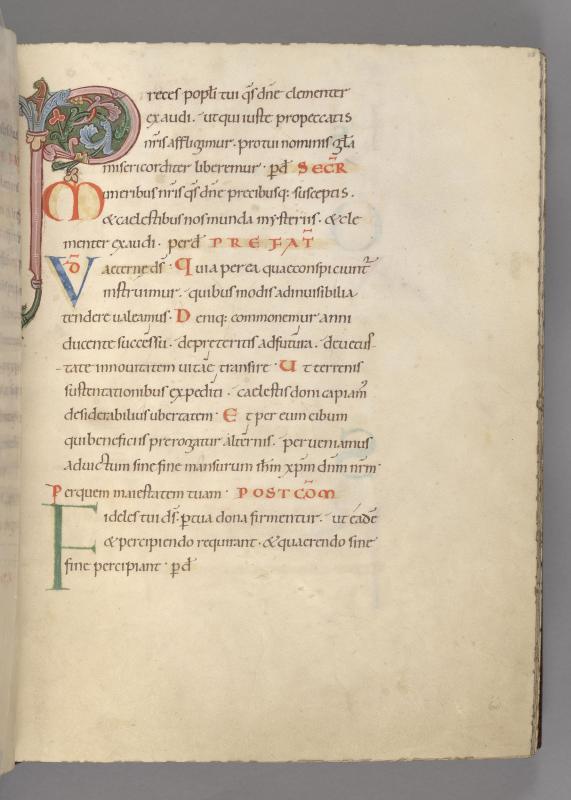 Preces popl̄i tui q̄s dn̄e clementer
exaudi. ut qui iuste pro peccatis
nr̄is affligimur. pro tui nominis gl̄a
misericorditer liberemur. p̄d SECR̄
Muneribus nr̄is q̄s dn̄e precibusq; susceptis.
& caelestibus nos munda mysteriis. & cle
menter exaudi. per d̄ PREFAT̄
VD̄ aeterne d̄s. Quia per ea quae conspiciunt̄
instruimur. quibus modis ad inuisibilia
tendere ualeamus. Deniq; commonemur anni
ducente successu. de preteritis ad futura. de uetus-
-tate in nouitatem uitae transire. Ut terrenis
sustentationibus expediti. caelestis doni capiam̄
desiderabilius ubertatem. Et per eum cibum
qui beneficiis prerogatur alternis. perueniamus
ad uictum sine fine mansurum ih̄m xp̄m dn̄m nr̄m.
Per quem maiestatem tuam. POSTCOM̄
Fideles tui d̄s. p̄ tua dona firmentur. ut eadē
& percipiendo requirant. & quaerendo sine
fine percipiant. p̄d